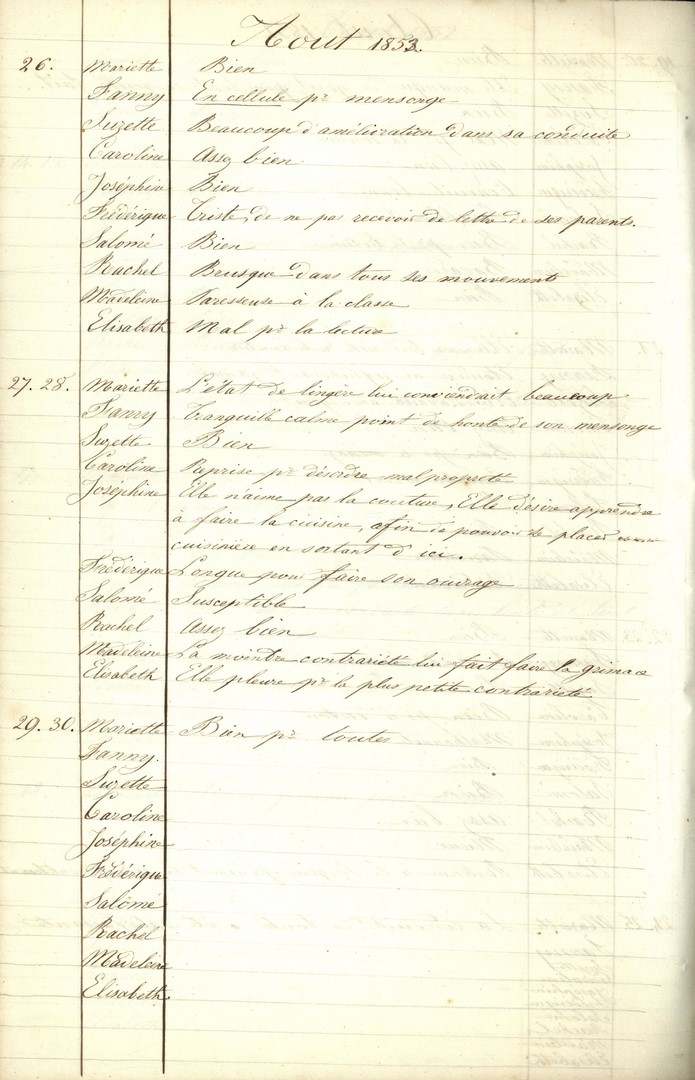 Aout 1853.
26. Mariette Bien
Fanny En cellule pr mensonge
Suzette Beaucoup d'amélioration dans sa conduite
Caroline Assez bien
Joséphine Bien
Frédérique Triste, de ne pas recevoir de lettre de ses parents.
Salomé Bien
Rachel Brusque dans tous ses mouvements
Madeleine Paresseuse à la classe
Elisabeth Mal pr la lecture
27. 28. Mariette L'état de lingère lui conviendrait beaucoup
Fanny tranquille calme point de honte de son mensonge
Suzette Bien
Caroline Reprise pr désordre malpropreté
Joséphine Elle n'aime pas la couture, Elle désire apprendre
à faire la cuisine, afin de pouvoir se placer comme
cuisinière en sortant d'ici.
Frédérique Longue pour faire son ouvrage
Salomé Susceptible
Rachel Assez bien
Madeleine La moindre contrariété lui fait faire la grimace
Elisabeth Elle pleure pr la plus petite contrariété
29. 30. Mariette Bien pr toutes
Fanny.
Suzette
Caroline
Joséphine
Frédérique
Salomé
Rachel
Madeleine
Elisabeth